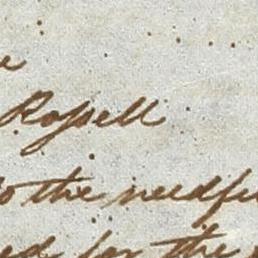 Roſsell
to the needfu
ed for the